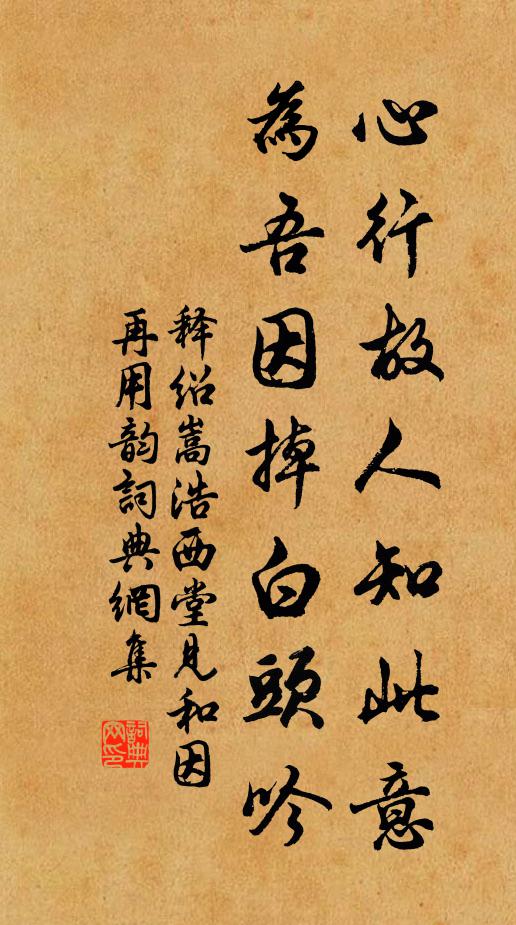 心行故人知此意
為吾因掉白頭吟
释绍嵩浩西堂见和因
再用韵詞典網集
詞典網印